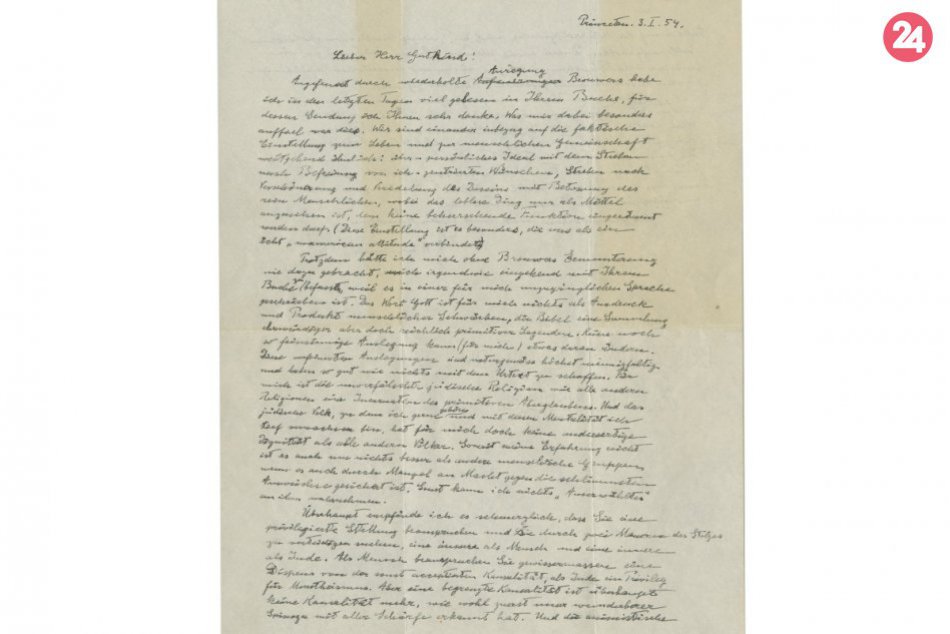 24
Princeton. 3. I. 54.
Lieber Herr Gutkind!
Anregung
Angefeuert durch wiederholte Brouwers habe
ich in den letzten Tagen viel gelesen in Ihrem Buche, für
dessen Sendung ich Ihnen sehr danke. Was mir dabei besonders
auffiel war dies. Wir sind einander inbezug auf die faktische
Einstellung zum Leben und zur menschlichen Gemeinschaft
weitgehend ähnlich: persönliches Ideal mit dem Streben
nach Befreiung von ich-zentrierten Wünschen, Streben nach
Verschönerung und Veredelung des Daseins mit Betonung des
rein Menschlichen, wobei das leblose Ding nur als Mittel
anzusehen ist, dem keine beherrschende Funktion eingeräumt
werden darf. (Diese Einstellung ist es besonders, die uns als ein
echt „unamerican attitude" verbindet)
Trotzdem hätte ich mich ohne Brouwers Ermunterung
nie dazu gebracht, mich irgendwie eingehend mit Ihrem
Buche zu befassen, weil es in einer für mich unzugänglichen Sprache
geschrieben ist. Das Wort Gott ist für mich nichts als Ausdruck
und Produkt menschlicher Schwächen, die Bibel eine Sammlung
ehrwürdiger aber doch reichlich primitiver Legenden. Keine noch
so feinsinnige Auslegung kann (für mich) etwas daran ändern.
Diese verfeinerten Auslegungen sind naturgemäss höchst mannigfaltig
und haben so gut wie nichts mit dem Urtext zu schaffen. Für
mich ist die unverfälschte jüdische Religion wie alle anderen
Religionen eine Incarnation des primitiven Aberglaubens. Und das
jüdische Volk, zu dem ich gerne gehöre und mit dessen Mentalität ich
tief verwachsen bin, hat für mich doch keine andersartige
Dignität als alle anderen Völker. Soweit meine Erfahrung reicht
ist es auch um nichts besser als andere menschliche Gruppen
wenn es auch durch Mangel an Macht gegen die schlimmsten
Auswüchse gesichert ist. Sonst kann ich nichts „Auserwähltes"
an ihm wahrnehmen.
Überhaupt empfinde ich es schmerzlich, dass Sie eine
privilegierte Stellung beanspruchen und sie durch zwei Mauern des Stolzes
zu verteidigen suchen, eine äussere als Mensch und eine innere
als Jude. Als Mensch beanspruchen Sie gewissermassen einen
Dispens von der sonst acceptierten Kausalität, als Jude ein Privileg
für Monotheismus. Aber eine begrenzte Kausalität ist überhaupt
keine Kausalität mehr, wie wohl zuerst unser wunderbarer
Spinoza mit aller Schärfe erkannt hat. Und die animistische